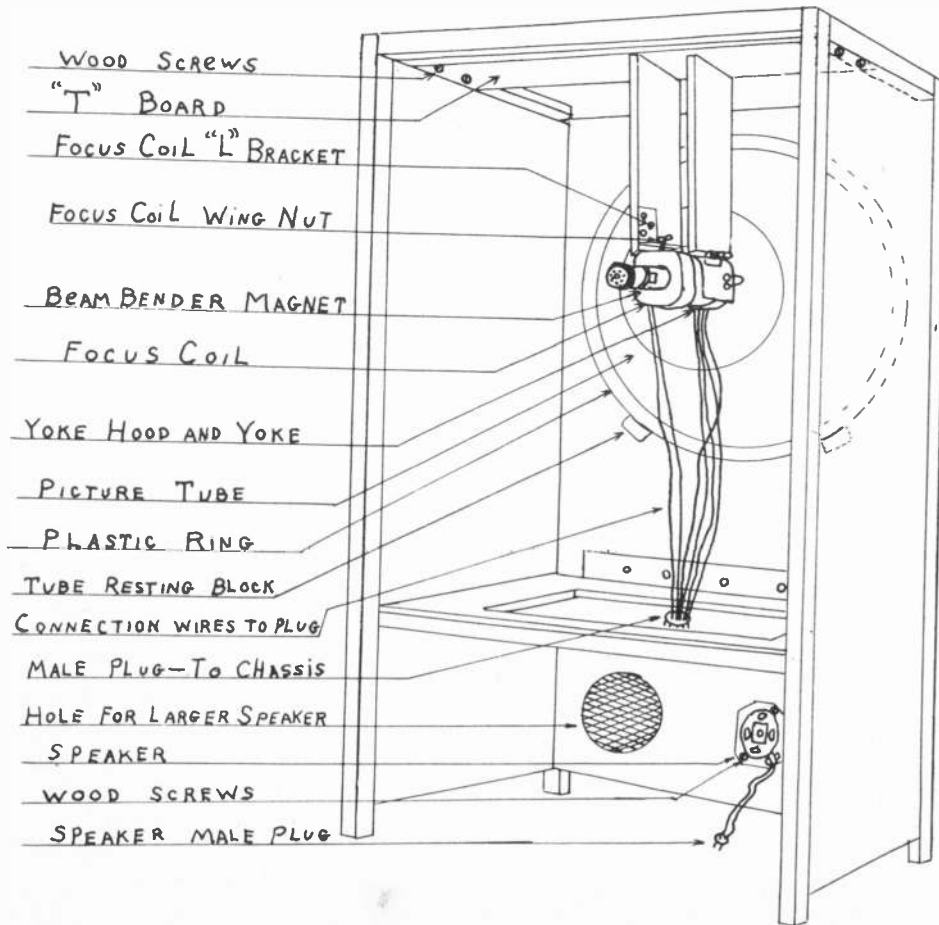 WOOD SCREWS
"T" BOARD
FOCUS COIL "L" BRACKET
FOCUS COIL WING NUT
BEAM BENDER MAGNET
FOCUS COIL
YOKE HOOD AND YOKE
PICTURE TUBE
PLASTIC RING
TUBE RESTING BLOCK
CONNECTION WIRES TO PLUG
MALE PLUG-TO CHASSIS
HOLE FOR LARGER SPEAKER
SPEAKER
WOOD SCREWS
SPEAKER MALE PLUG